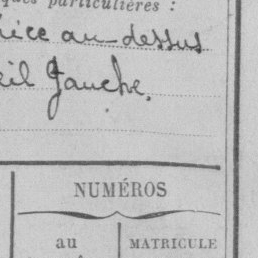 ques particulières :
au-dessus
Gauche.
NUMÉROS
au
MATRICULE